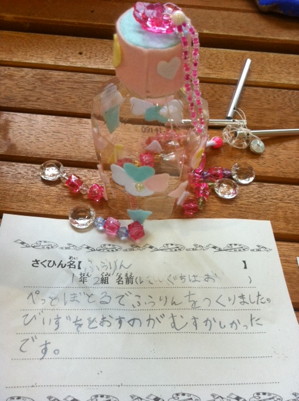 さくひん名【ふうりん】
1年2組 名前(
ぺっとぼとるでふうりんをつくりました。
びいずをとおすのがむずかしかった
です。